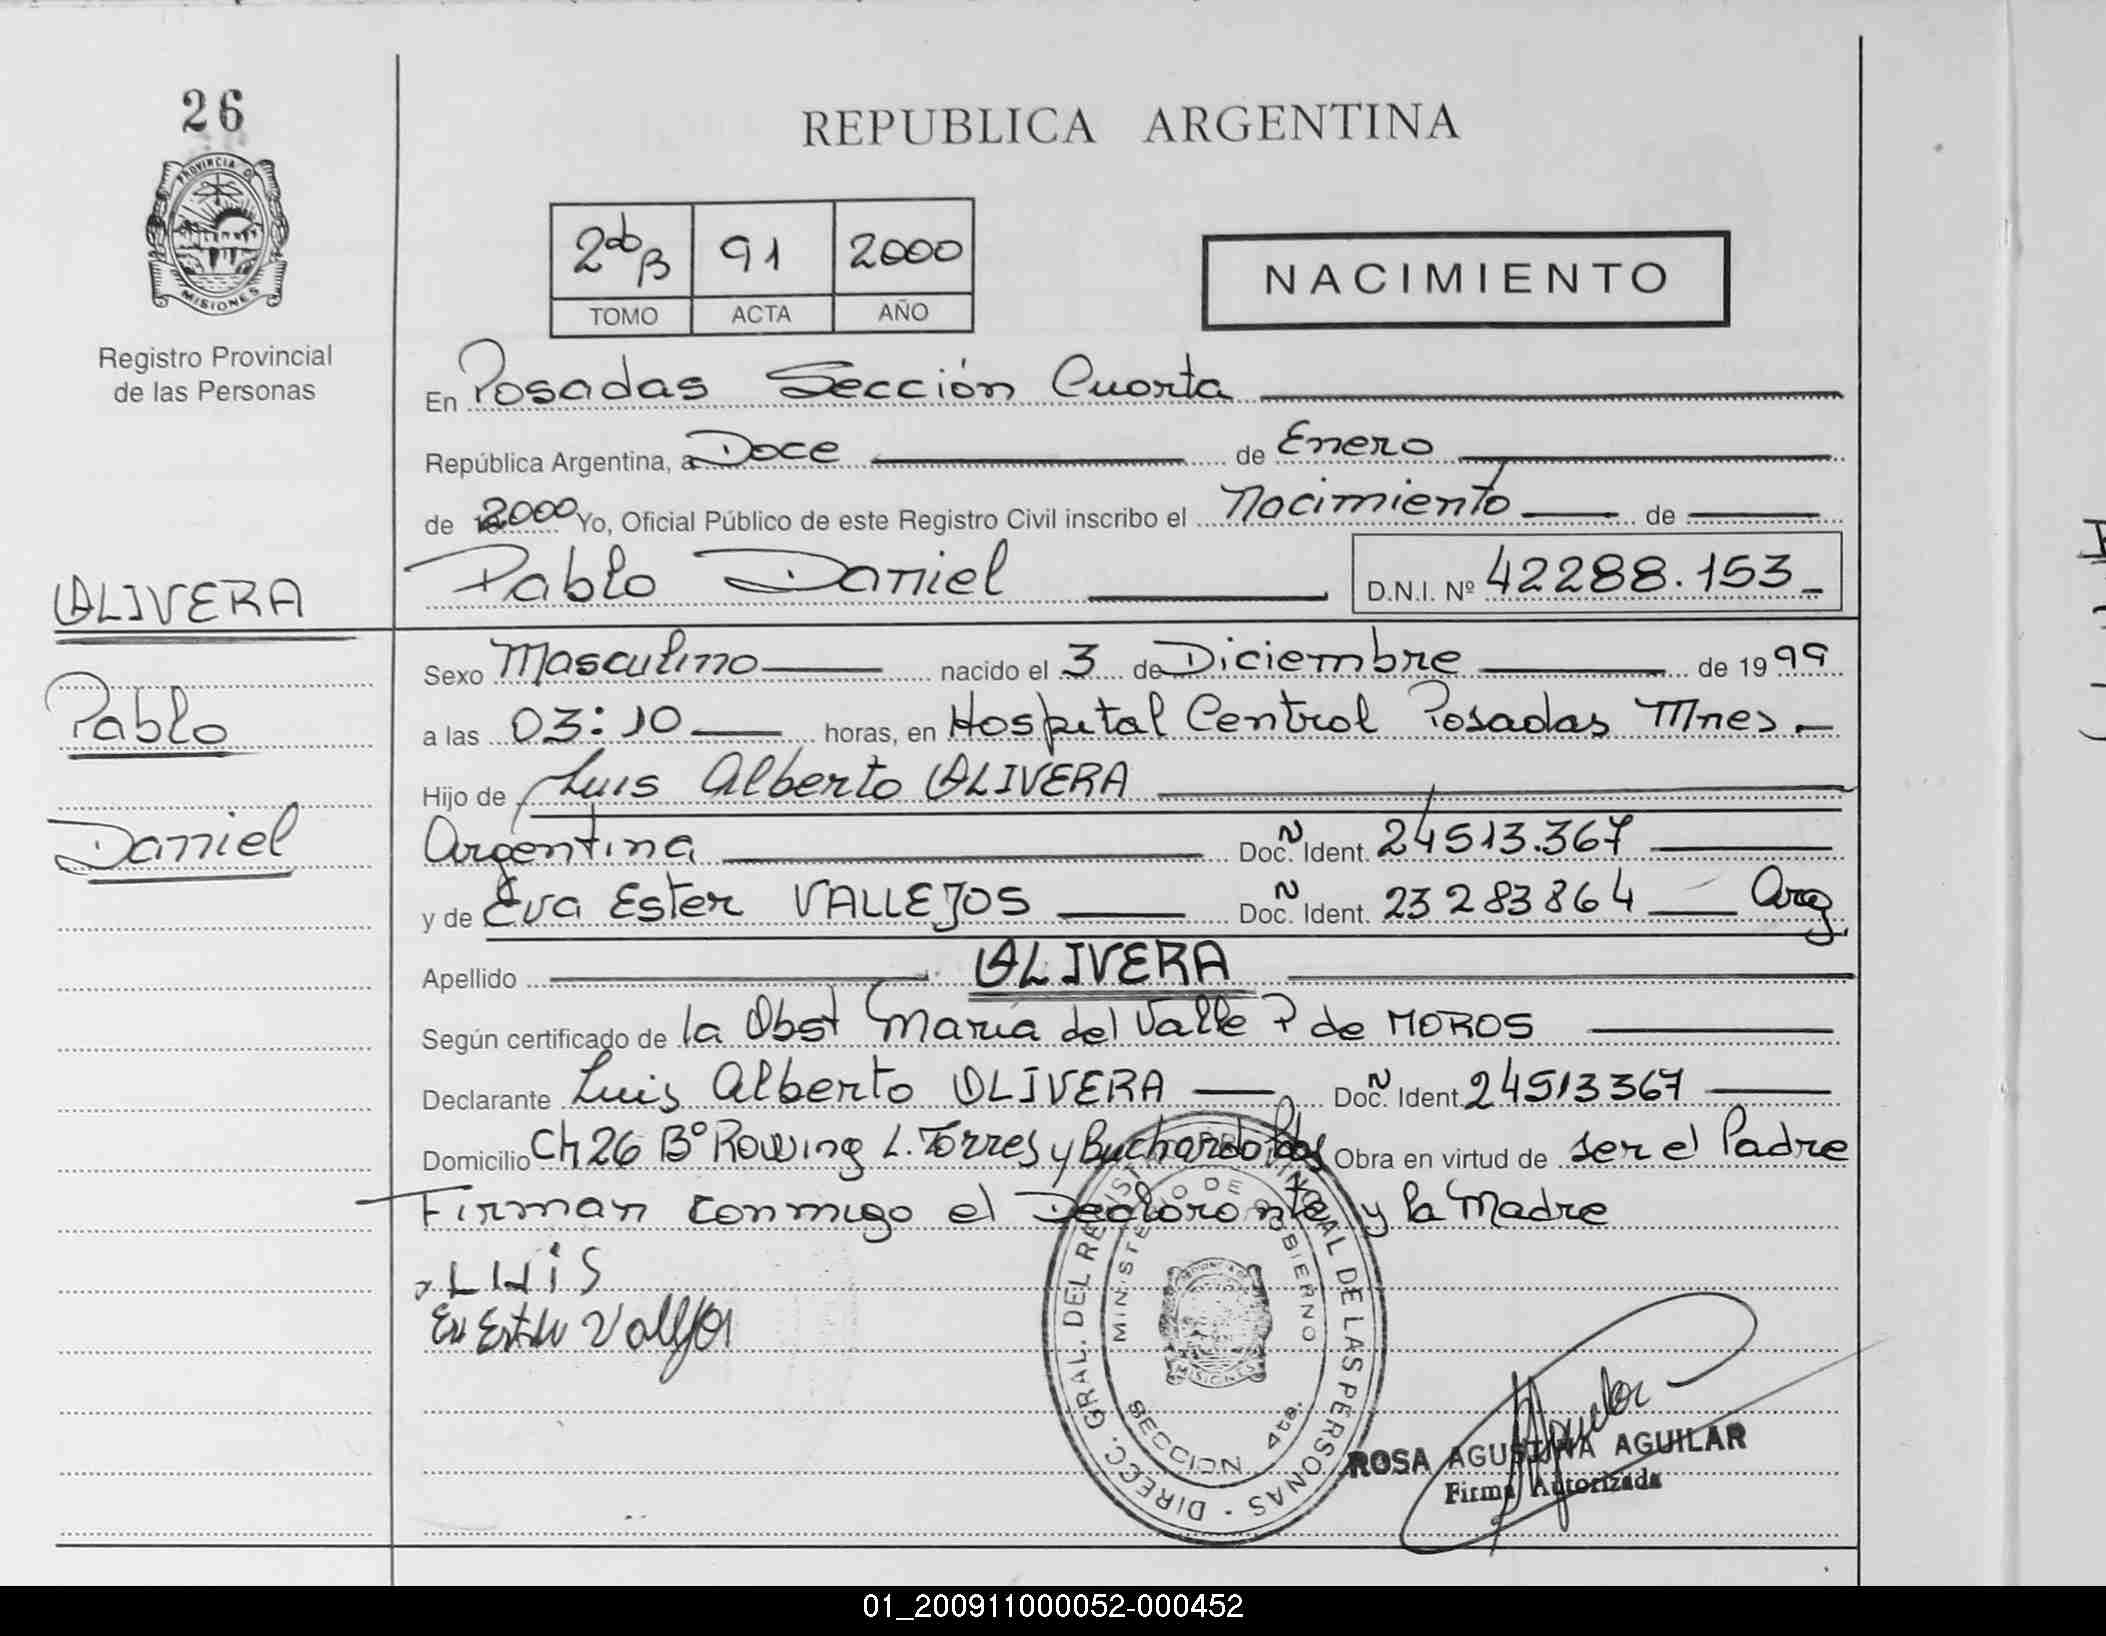 26
PROVINCIA D
MISIONES
Registro Provincial
de las Personas
OLIVERA
Pablo
Daniel
REPUBLICA ARGENTINA
91 2000
TOMO ACTA AÑO
NACIMIENTO
En Posadas Sección Cuarta
República Argentina, a Doce de Enero
de 2000 Yo, Oficial Público de este Registro Civil inscribo el Nacimiento de
Pablo Daniel D.N.I. Nº 42288.153
Sexo Masculino nacido el 3 de Diciembre de 1999
a las 03:10 horas, en Hospital Central Posadas Mnes
Hijo de Luis Alberto OLIVERA
Argentina Doc. N Ident. 24513.367
y de Eva Ester VALLEJOS Doc. N Ident. 23283864 Arg
Apellido OLIVERA
Según certificado de la Obst Maria del Valle P de MOROS
Declarante Luis Alberto OLIVERA Doc. N Ident. 24513367
Domicilio Ch 26 Bº Rowing L. Torres y Buchardo Pdas Obra en virtud de ser el Padre
Firman conmigo el Declarante y la Madre
LUiS
Vallejos
DIRECC. GRAL. DEL REGISTRO PROVINCIAL DE LAS PERSONAS
MINISTERIO DE GOBIERNO
MISIONES
SECCION 4ta.
ROSA AGUSTINA AGUILAR
Firma Autorizada
01_200911000052-000452